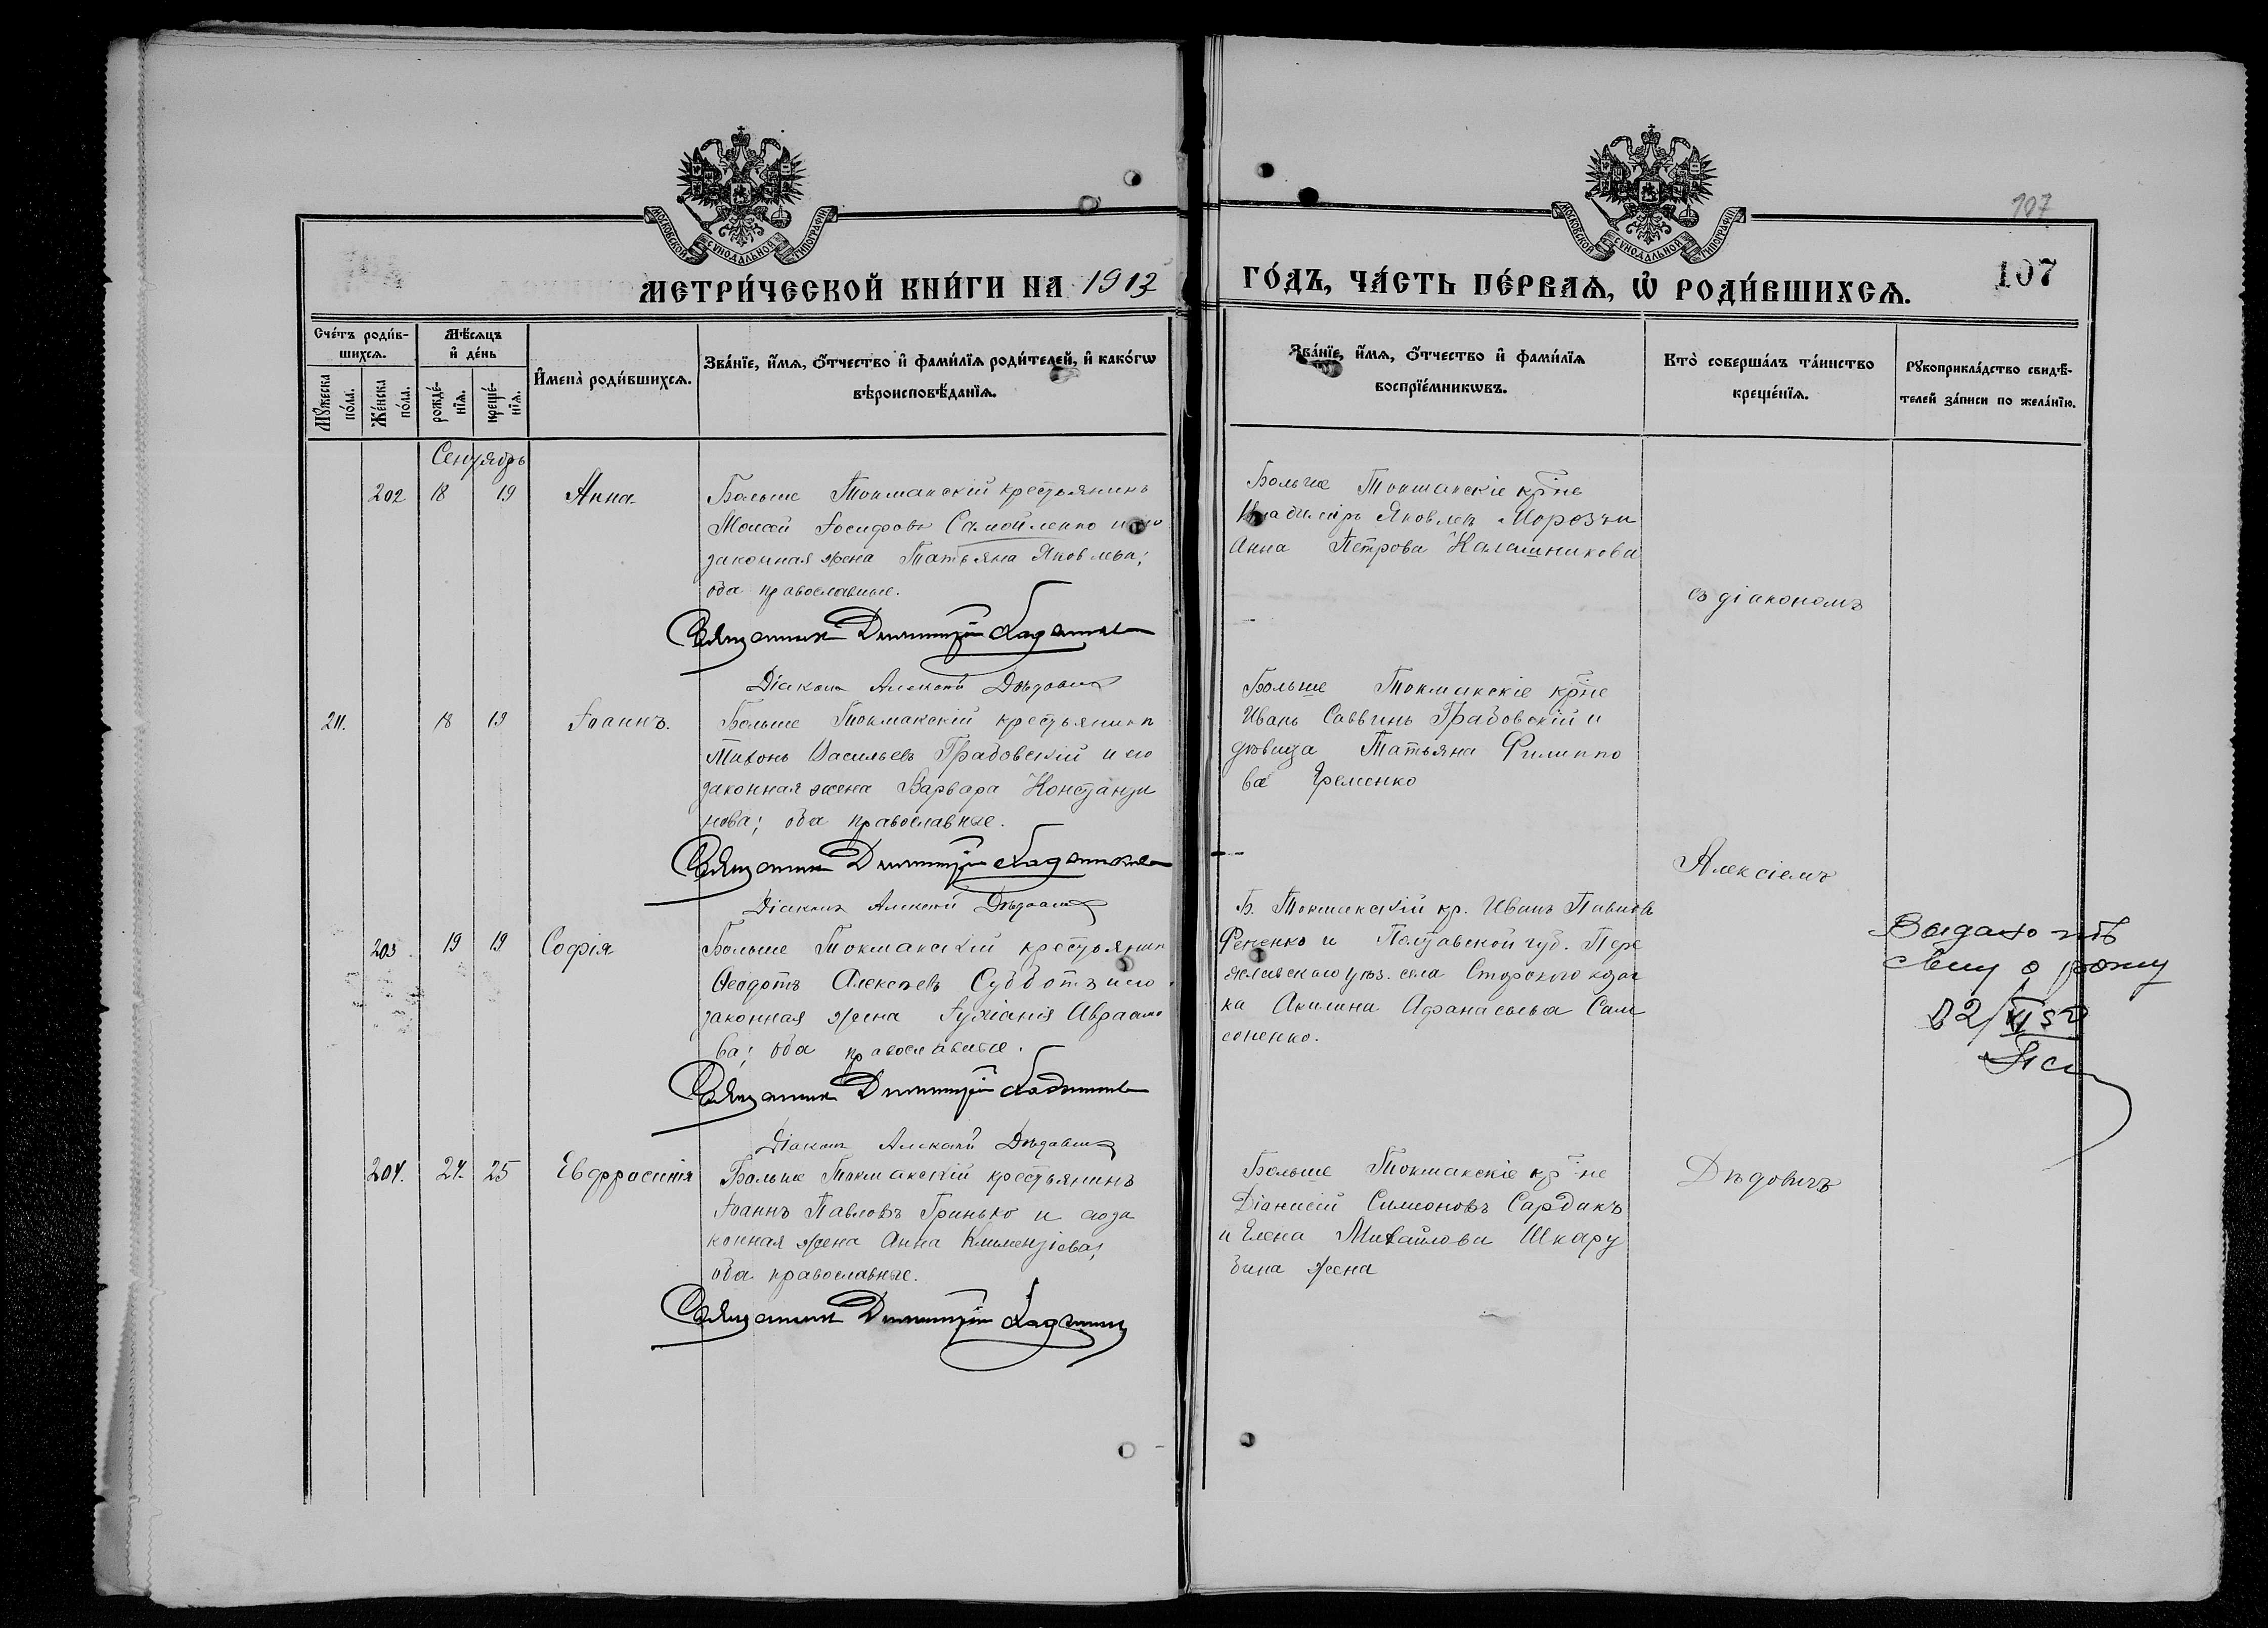 107
МОСКОВСКОЙ СУНОДАЛЬНОЙ ТИПОГРАФІИ
МОСКОВСКОЙ СУНОДАЛЬНОЙ ТИПОГРАФІИ
МЕТРИ́ЧЕСКОЙ КНИ́ГИ НА 1913
ГО́ДЪ, ЧА́СТЬ ПЕ́РВАѦ, Ѡ РОДИ́ВШИХСѦ.
107
Сче́тъ роди́в-
шихсѧ.
Мѣ́сѧцъ
и҆ де́нь
Мꙋ́жеска
по́ла.
Же́нска
по́ла.
рожде́-
нїѧ.
креще́-
нїѧ.
И҆мена̀ роди́вшихсѧ.
Зва́нїе, и҆́мѧ, ѻ҆́тчество и҆ фами́лїѧ роди́телей, и҆ како́гѡ
вѣроисповѣ́данїѧ.
Зва́нїе, и҆́мѧ, ѻ҆́тчество и҆ фами́лїѧ
воспрїе́мникѡвъ.
Кто̀ соверша́лъ та́инство
креще́нїѧ.
Рꙋкоприкла́дство свидѣ́-
телей за́писи по жела́нїю.
Сентябрь
202 18 19 Анна
Больше Токмакскій крестьянинъ
Моисей Іосифовъ Самойленко и его
законная жена Татьяна Яковлева;
оба православные.
Священникъ Димитрій
Діаконъ Алексій Дѣдовичъ
Больше Токмакскіе кр-не
Владиміръ Яковлевъ Морозъ и
Анна Петрова Калашникова
съ діакономъ
211. 18 19 Іоаннъ.
Больше Токмакскій крестьянинъ
Тихонъ Васильевъ Грабовскій и его
законная жена Варвара Константи
нова; оба православные.
Священникъ Димитрій
Діаконъ Алексій Дѣдовичъ
Больше Токмакскіе кр-не
Иванъ Саввинъ Грабовскій и
дѣвица Татьяна Филиппо
ва Еременко
Алексіемъ
203. 19 19 Софія
Больше Токмакскій крестьянинъ
Ѳеодотъ Алексѣевъ Субботъ и его
законная жена Іуліанія Авраамо
ва; оба православные.
Священникъ Димитрій
Діаконъ Алексій Дѣдовичъ
Б. Токмакскій кр. Иванъ Павловъ
Фененко и Полтавской губ. Пере
яславскаго уѣз. села козач
ка Акилина Афанасьева Сам
соненко.
Выдано
о рожд
204. 24. 25 Евфросинія
Больше Токмакскій крестьянинъ
Іоаннъ Павловъ Гринько и его за
конная жена Анна Климентіева;
оба православные.
Священникъ Димитрій
Больше Токмакскіе кр-не
Діонисій Симеоновъ Сардакъ
и Елена Михайлова Шкару
бина жена
Дѣдовичъ